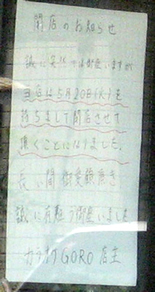 閉店のお知らせ
誠に勝手では御座いますが
当店は5月20日(火)を
持ちまして閉店させて
頂くことになりました。
長い間御愛顧頂き
誠に有難う御座いました
カラオケGORO 店主